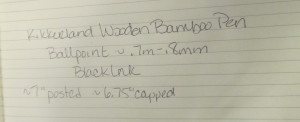 Kikkerland Wooden Bamboo Pen
Ballpoint ~ .7m-.8mm
Black Ink
~7" posted ~6.75" capped